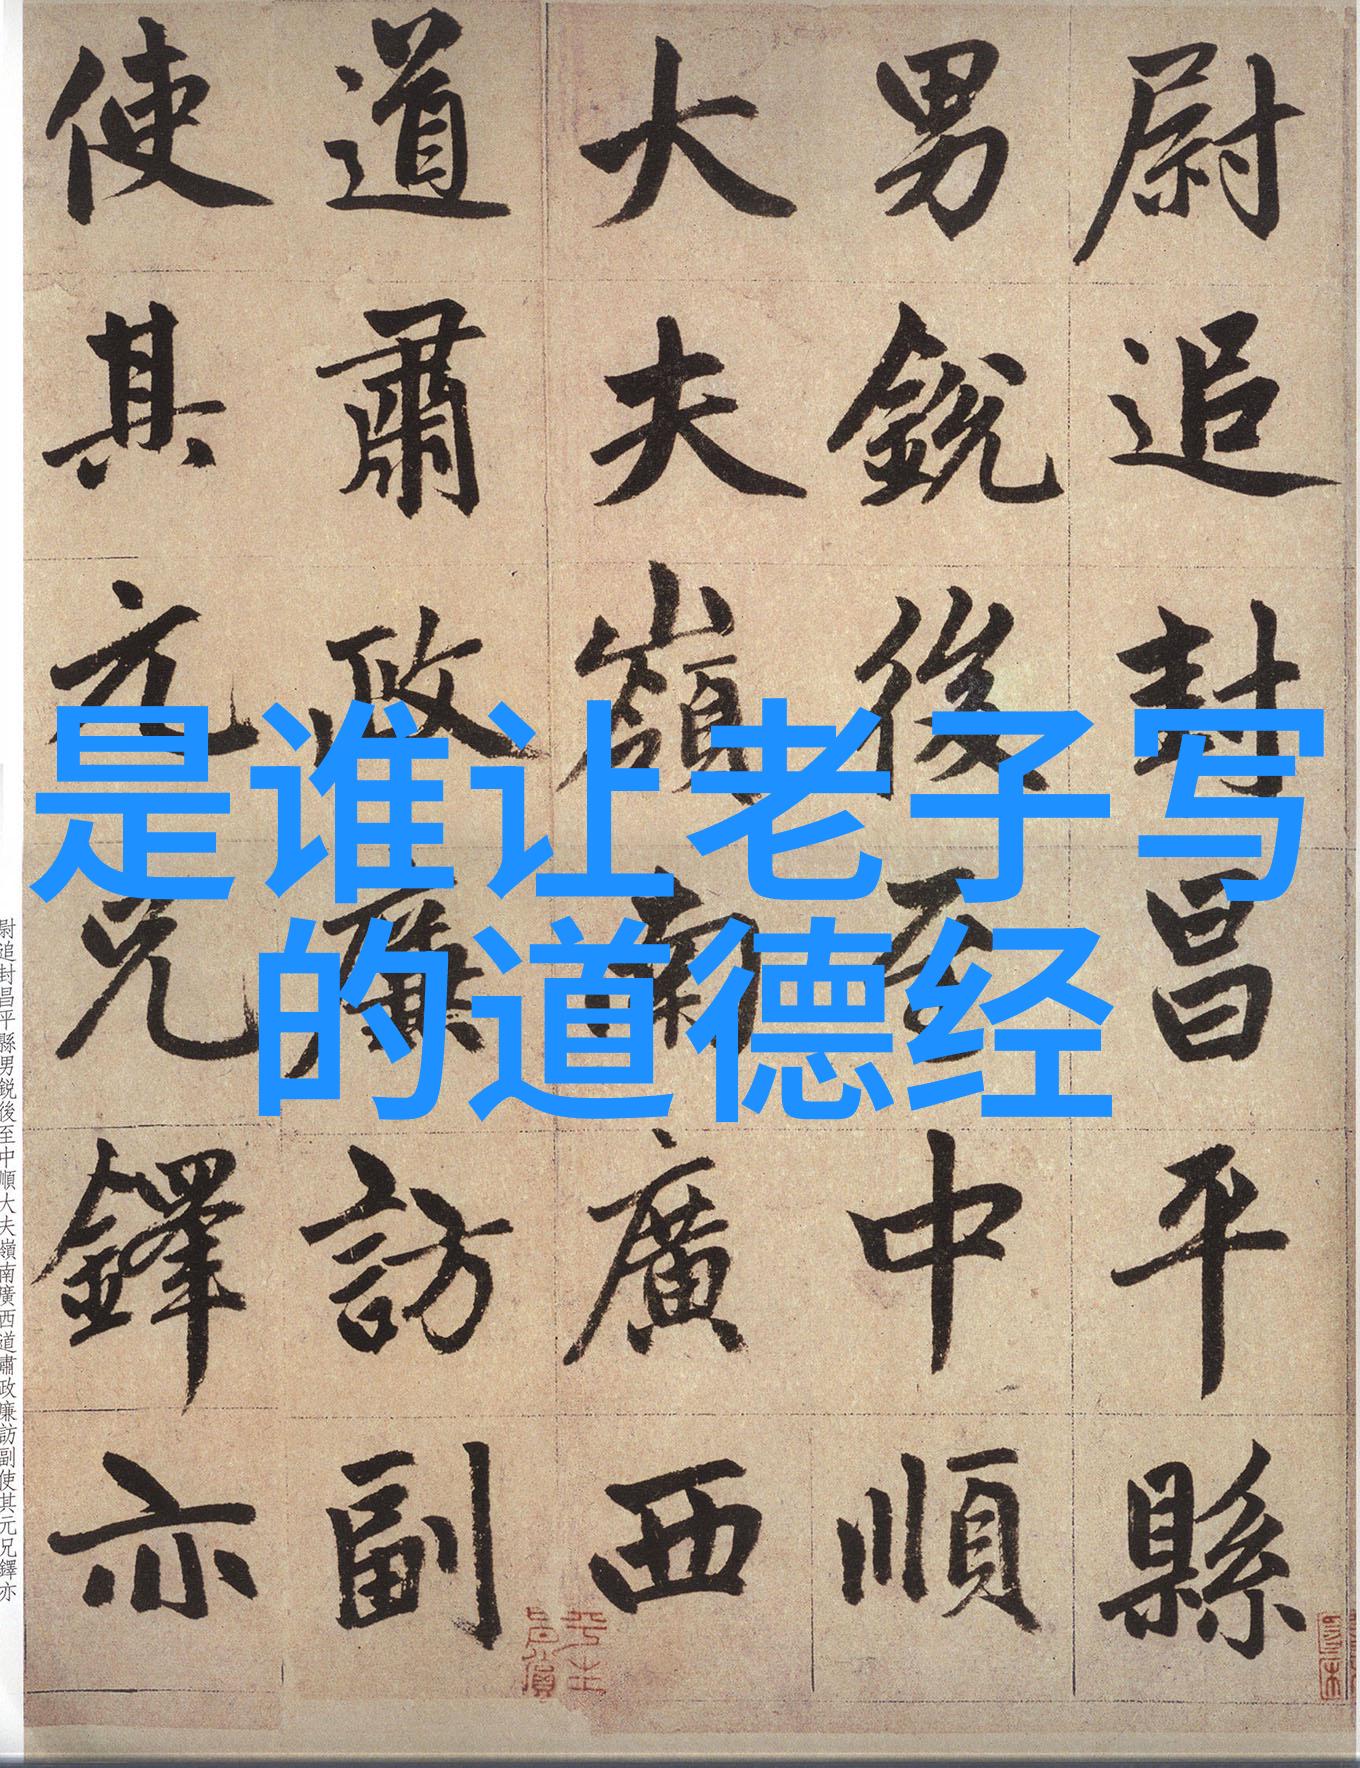 尉追封昌平縣
男銳後至中順
大夫嶺南廣西
道肅政廉訪副
使其元兄鐸亦
是谁让老子写
的道德经
尉追封昌平縣男銳後至中順大夫嶺南廣西道肅政廉訪副使其元兄鐸亦